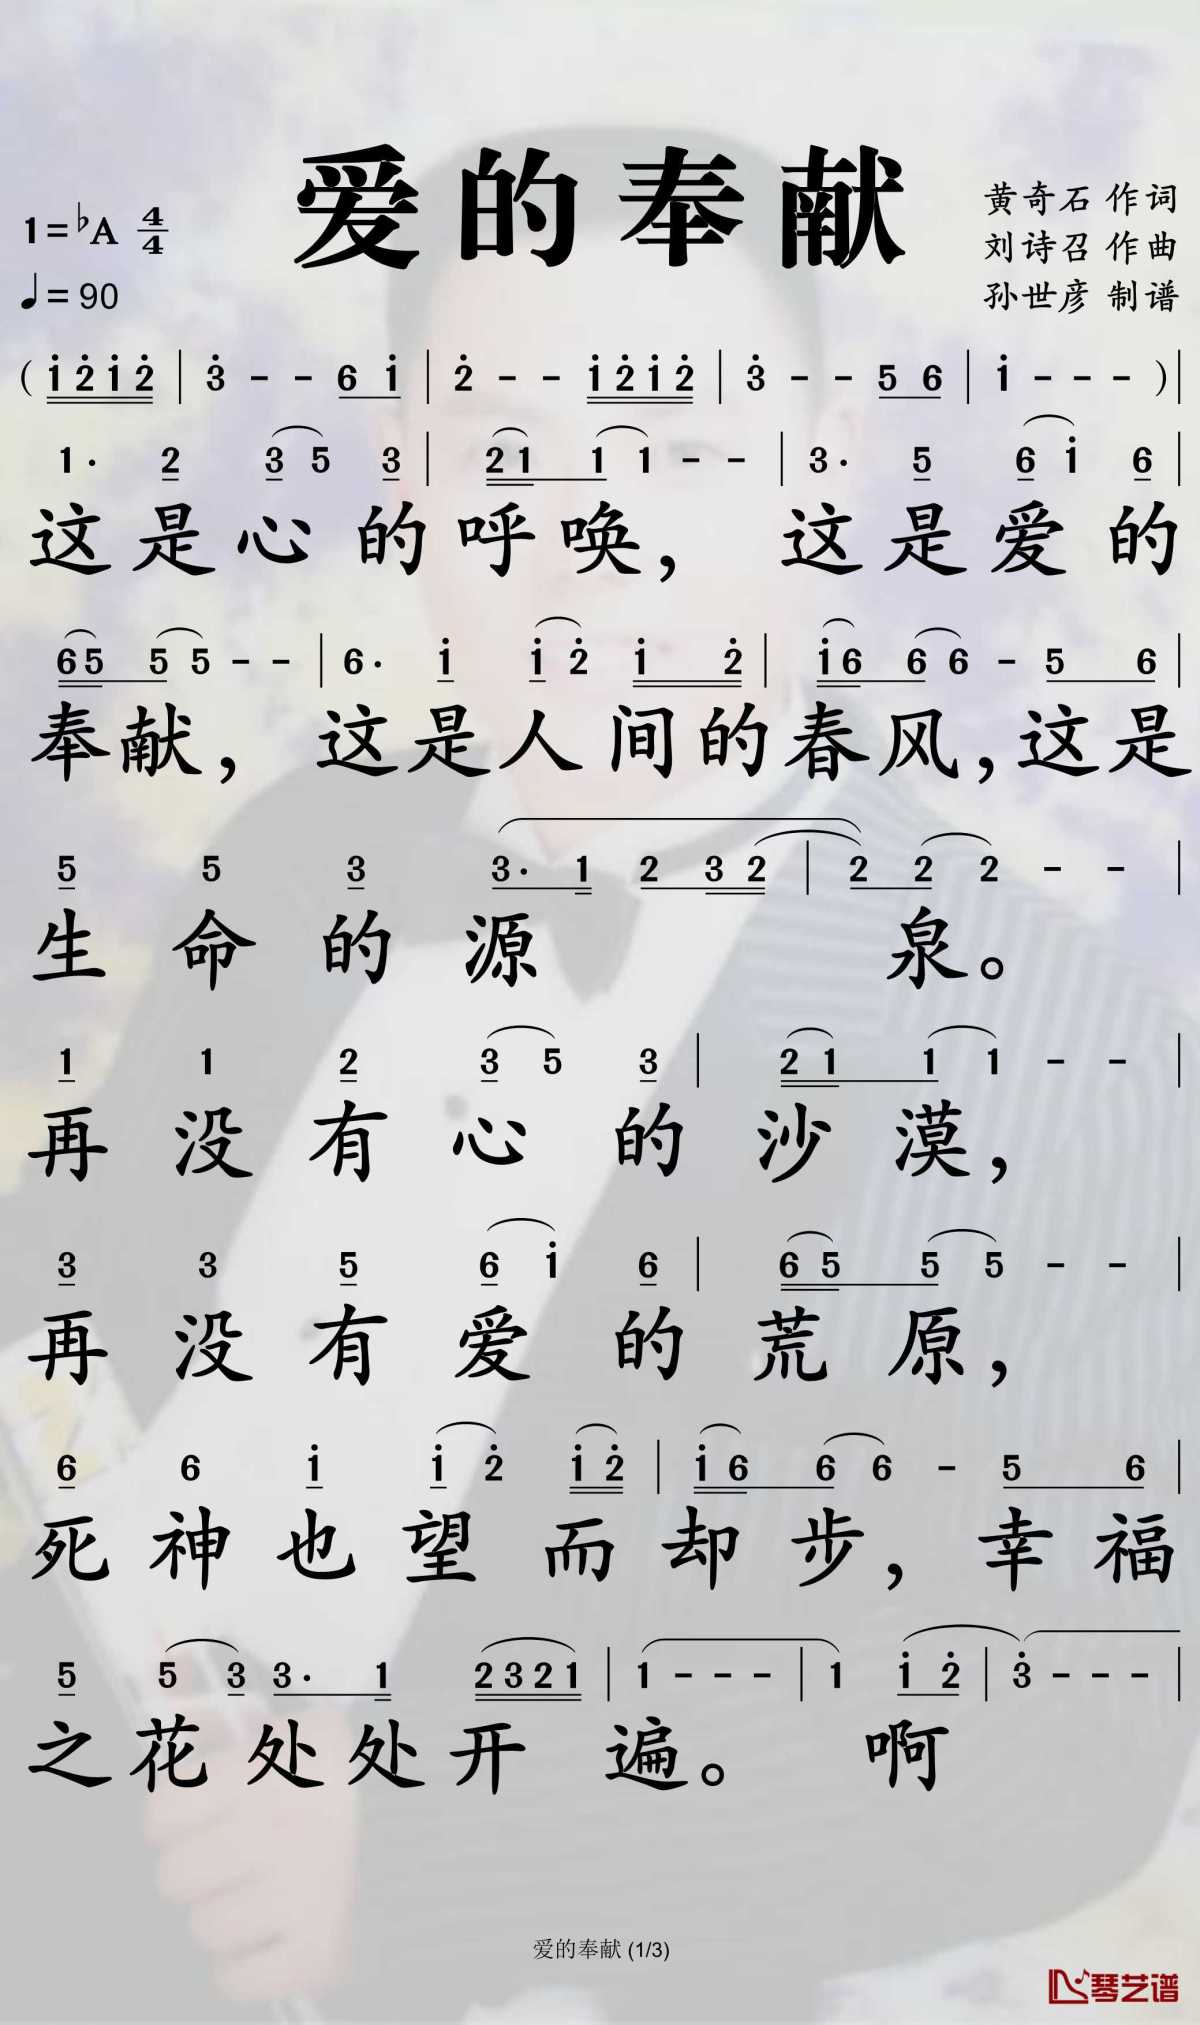 爱的奉献
黄奇石 作词
刘诗召 作曲
孙世彦 制谱
1=♭A 4/4
♩=90
( i̇ 2̇ i̇ 2̇ | 3̇ - - 6 i̇ | 2̇ - - i̇ 2̇ i̇ 2̇ | 3̇ - - 5 6 | i̇ - - - ) |
1· 2 3 5 3 | 2 1 1 1 - - | 3· 5 6 i̇ 6 |
这是心的呼唤，这是爱的
6 5 5 5 - - | 6· i̇ i̇ 2̇ i̇ 2̇ | i̇ 6 6 6 - 5 6 |
奉献，这是人间的春风，这是
5 5 3 3· 1 2 3 2 | 2 2 2 - - |
生命的源泉。
1 1 2 3 5 3 | 2 1 1 1 - - |
再没有心的沙漠，
3 3 5 6 i̇ 6 | 6 5 5 5 - - |
再没有爱的荒原，
6 6 i̇ i̇ 2̇ i̇ 2̇ | i̇ 6 6 6 - 5 6 |
死神也望而却步，幸福
5 5 3 3· 1 2 3 2 1 | 1 - - - | 1 i̇ 2̇ | 3̇ - - - |
之花处处开遍。啊
爱的奉献 (1/3)
琴艺谱